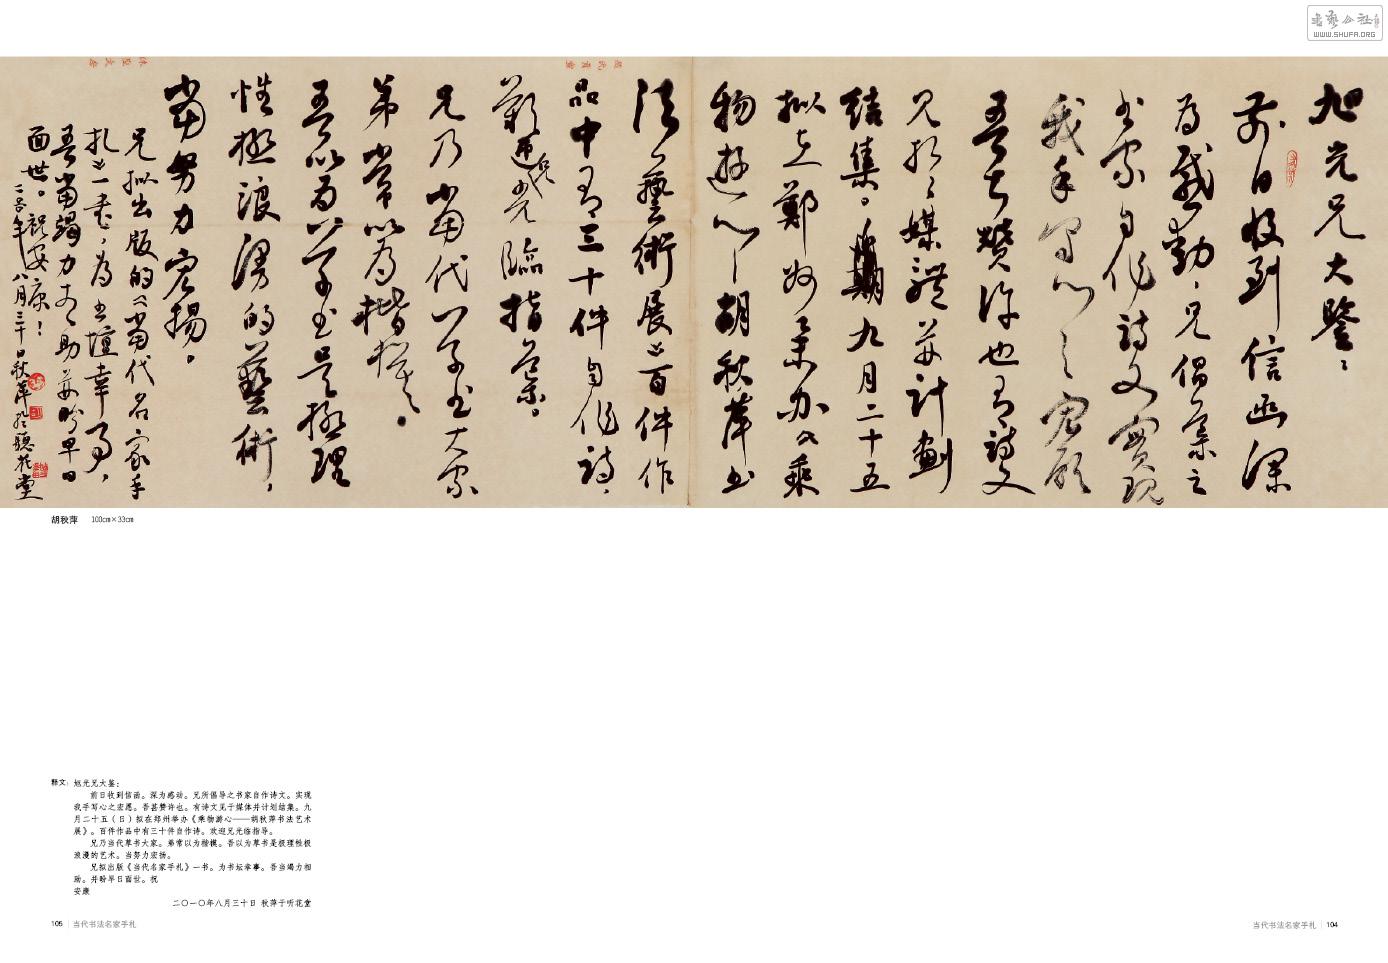 书艺公社
WWW.SHUFA.ORG
旭光兄大鉴：
前日收到信函深
为感动，兄倡导之
书家自作诗文实现
我手写心之宏愿
吾甚赞许也有诗文
见于媒体并计划
结集。九月二十五
拟在郑州举办乘
物游心—胡秋萍书
法艺术展百件作
品中有三十件自作诗，
欢迎兄光临指导。
兄乃当代草书大家
弟常以为楷模。
吾以为草书是极理
性极浪漫的艺术，
当努力宏扬。
兄拟出版的《当代名家手
札》一书，为书坛幸事，
吾当竭力相助并盼早日
面世。祝安康！
二〇一〇年八月三十日秋萍于听花堂
胡秋萍 100cm×33cm
释文：旭光兄大鉴：
前日收到信函。深为感动。兄所倡导之书家自作诗文。实现
我手写心之宏愿。吾甚赞许也。有诗文见于媒体并计划结集。九
月二十五（日）拟在郑州举办《乘物游心——胡秋萍书法艺术
展》。百件作品中有三十件自作诗。欢迎兄光临指导。
兄乃当代草书大家。弟常以为楷模。吾以为草书是极理性极
浪漫的艺术。当努力宏扬。
兄拟出版《当代名家手札》一书。为书坛幸事。吾当竭力相
助。并盼早日面世。祝
安康
二〇一〇年八月三十日 秋萍于听花堂
105 当代书法名家手札
当代书法名家手札 104